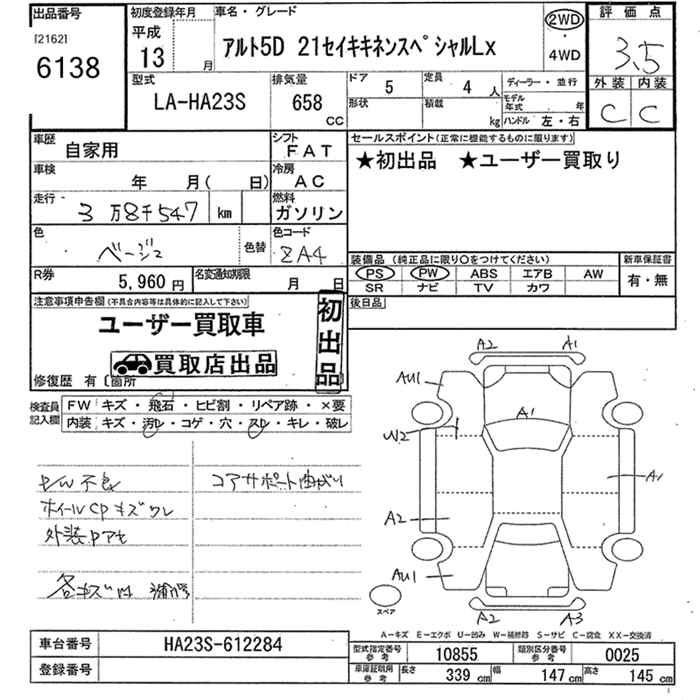 出品番号
[2162]
6138
初度登録年月
平成
13 月
車名・グレード
アルト5D 21セイキキネンスペシャルLx
2WD
・
4WD
評価点
3.5
外装 内装
C C
型式
LA-HA23S
排気量
658
CC
ドア 5
形状
定員 4 人
積載 kg
ディーラー・並行
モデル年式 年
ハンドル 左・右
車歴
自家用
シフト
FAT
車検
年 月( 日)
冷房
AC
走行
3万8千547 km
燃料
ガソリン
色
ベージュ
色替
色コード
ZA4
R券
5,960 円
名変通知期限
月 日
セールスポイント(正常に機能するものに限ります)
★初出品 ★ユーザー買取り
装備品(純正品に限り○をつけてください)
PS PW ABS エアB AW
SR ナビ TV カワ
新車保証書
有・無
後日品
注意事項申告欄(不具合内容等は具体的に記入して下さい)
ユーザー買取車
買取店出品
初出品
修復歴 有 (箇所
検査員記入欄
FW キズ・飛石・ヒビ割・リペア跡・×要
内装 キズ・汚レ・コゲ・穴・スレ・キレ・破レ
P/W不良
ホイールCPキズワレ
外装アセ
各キズ凹
コアサポート曲がり
A2 A1
AU1
A1
W2
A1
A2
AU1
スペア
A2 A3
A-キズ E-エクボ U-凹み W-補修跡 S-サビ C-腐食 XX-交換済
車台番号
HA23S-612284
登録番号
型式指定番号 参考
10855
類別区分番号 参考
0025
車庫証取用 参考
長さ 339 cm 幅 147 cm 高さ 145 cm